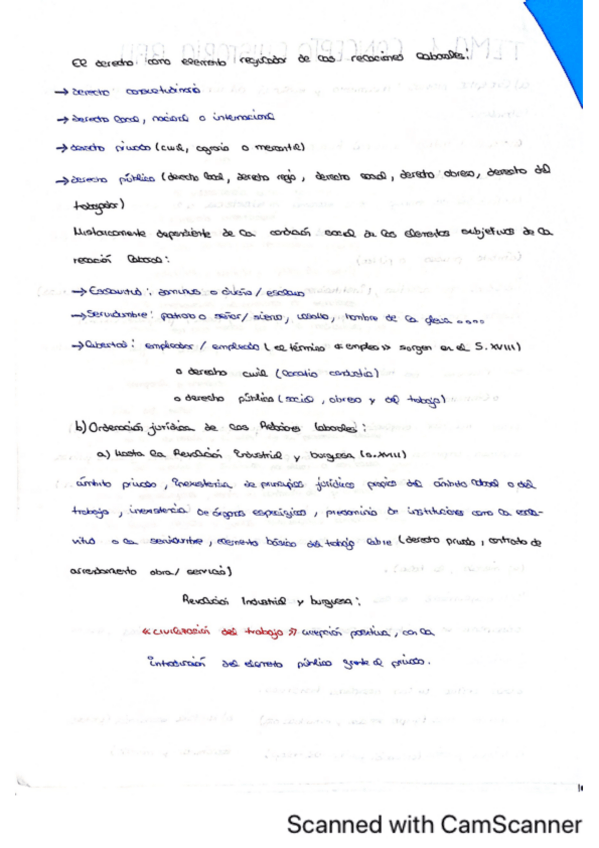 El derecho como elemento regulador de las relaciones laborales:
→ derecho consuetudinario
→ derecho local, nacional o internacional
→ derecho privado (civil, agrario o mercantil)
→ derecho público (derecho local, derecho regio, derecho social, derecho obrero, derecho del
trabajador)
Históricamente dependiente de la condición social de los elementos subjetivos de la
relación laboral:
→ Esclavitud: dominus o dueño / esclavo
→ Servidumbre: patrono o señor / siervo, vasallo, hombre de la gleva ....
→ Libertad: empleador / empleado (el término «empleo» surge en el S. XVIII)
o derecho civil (locatio conductio)
o derecho público (social, obrero y del trabajo)
b) Ordenación jurídica de las Relaciones laborales:
a) Hasta la Revolución Industrial y burguesa (s. XVIII)
ámbito privado, Inexistencia de principios jurídicos propios del ámbito laboral o del
trabajo, inexistencia de órganos específicos, predominio de instituciones como la escla-
vitud o la servidumbre, elemento básico del trabajo libre (derecho privado, contrato de
arrendamiento obra / servicio)
Revolución Industrial y burguesa:
«civilización del trabajo» acepción positiva, con la
introducción del elemento público frente al privado.
Scanned with CamScanner